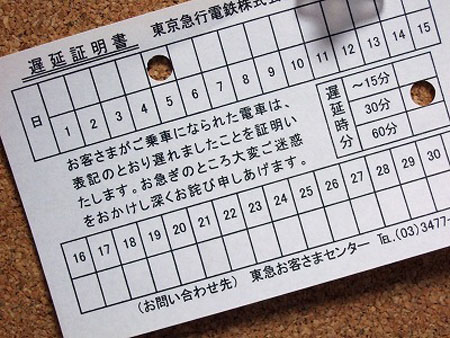 遅延証明書 東京急行電鉄株式
日 1 2 3 4 5 6 7 8 9 10 11 12 13 14 15
お客さまがご乗車になられた電車は、
表記のとおり遅れましたことを証明い
たします。お急ぎのところ大変ご迷惑
をおかけし深くお詫び申しあげます。
遅延時分
～15分
30分
60分
16 17 18 19 20 21 22 23 24 25 26 27 28 29 30
(お問い合わせ先) 東急お客さまセンター TEL.(03)3477-